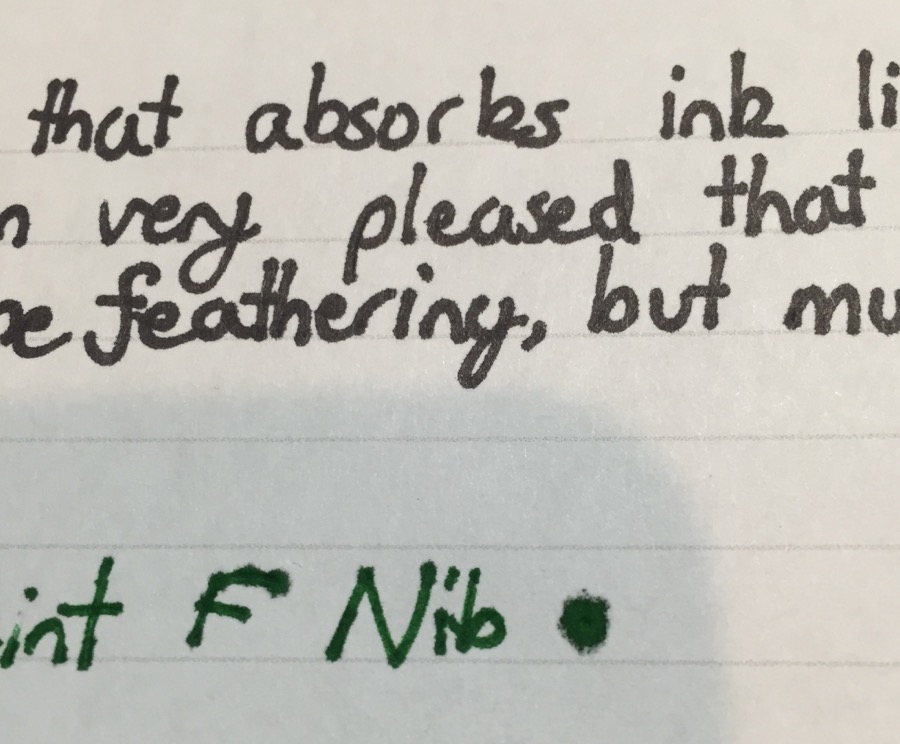 that absorbs ink li
n very pleased that
be feathering, but mu
int F Nib